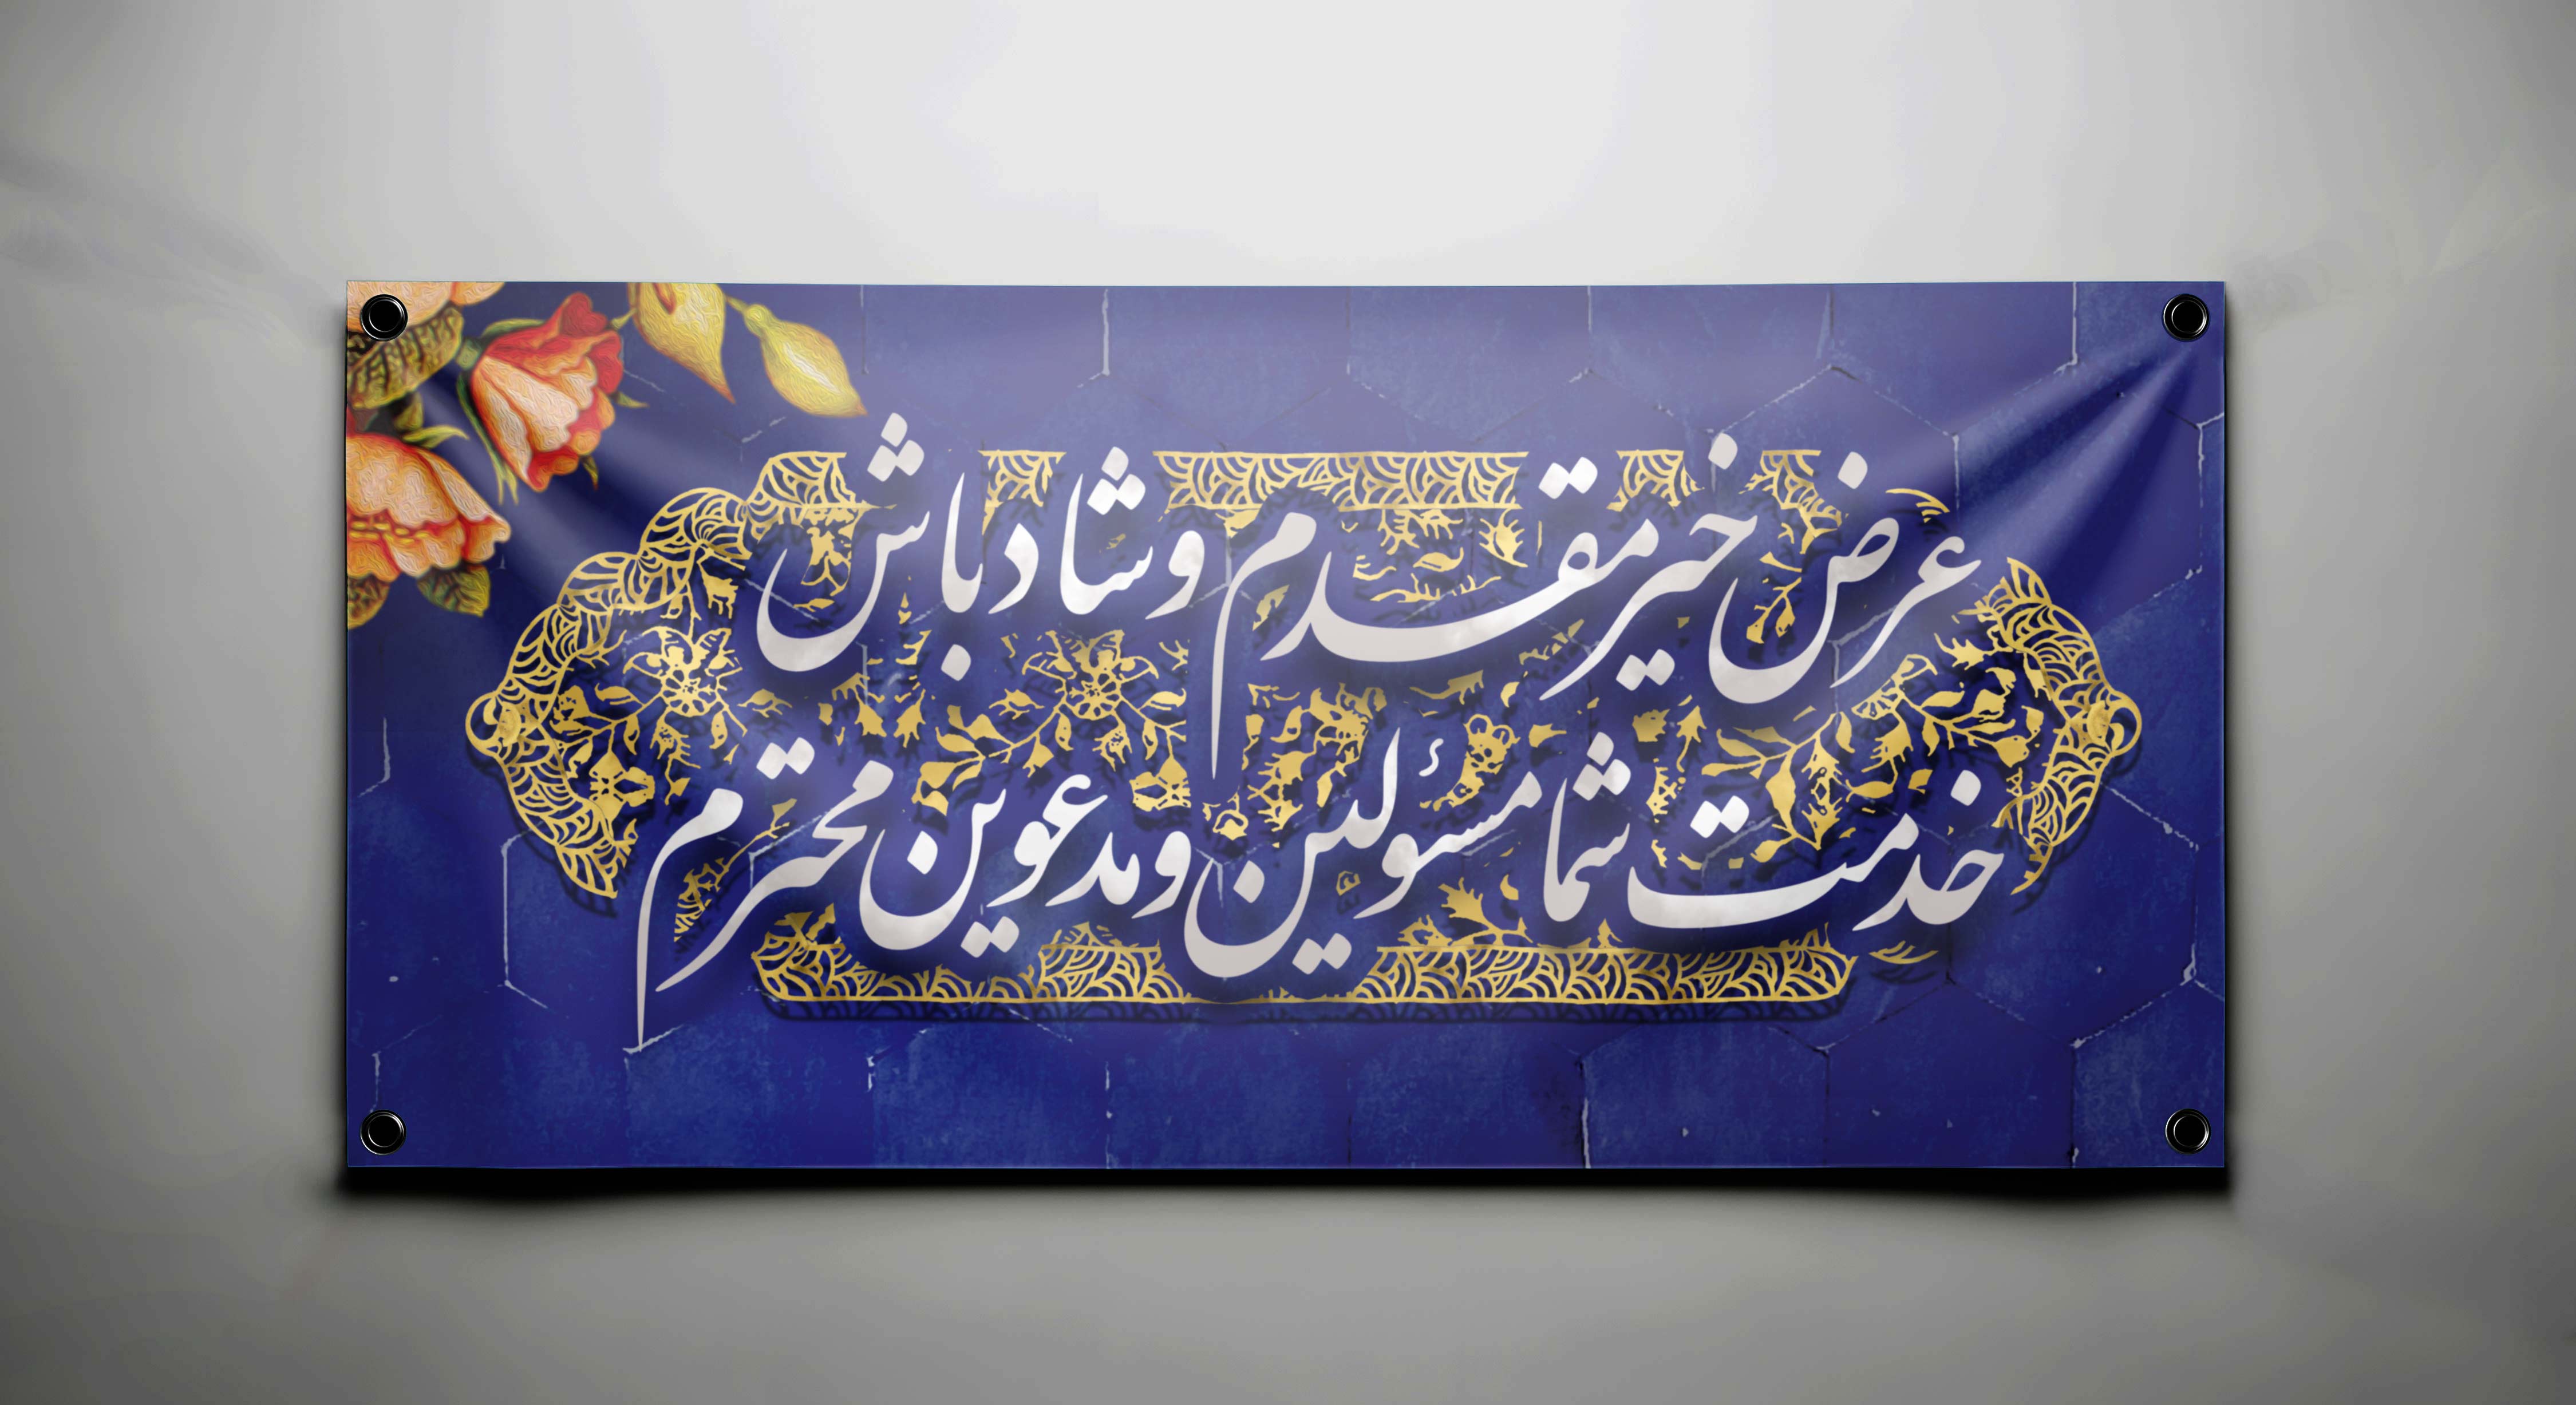 عرض خیر مقدم و شاد باش
خدمت شما مسئولین و مدعوین محترم